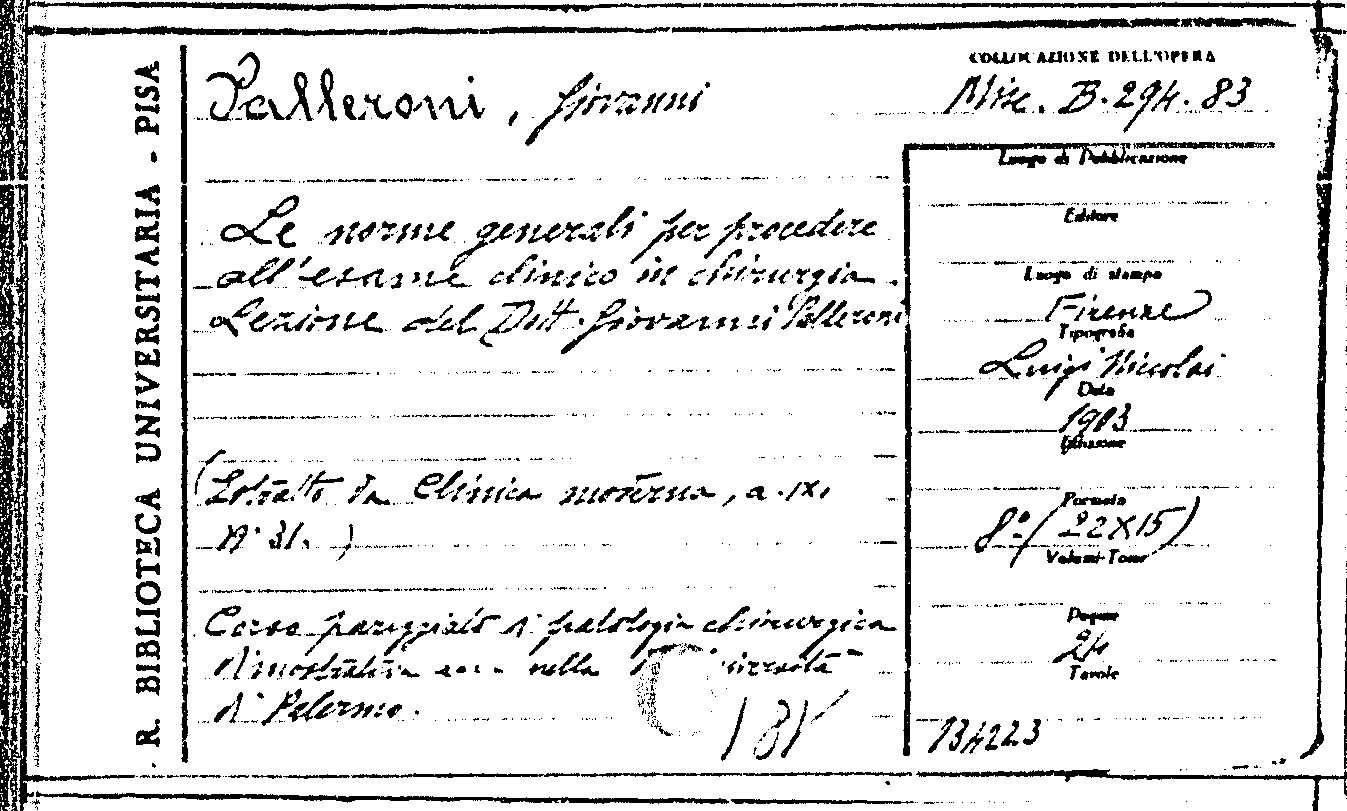 R. BIBLIOTECA UNIVERSITARIA - PISA
Palleroni, Giovanni
COLLOCAZIONE DELL'OPERA
Misc. B. 294. 83
Le norme generali per procedere
all'esame clinico in chirurgia.
Lezione del Dott. Giovanni Palleroni
(Estratto da Clinica moderna, a. IX.
N. 31.)
Corso pareggiato di patologia chirurgica
dimostrativa ecc. nella
di Palermo.
181
Luogo di Pubblicazione
Editore
Luogo di stampa
Firenze
Tipografia
Luigi Niccolai
Data
1903
Edizione
Formato
8º (22X15)
Volumi-Tomi
Pagine
24
Tavole
134223